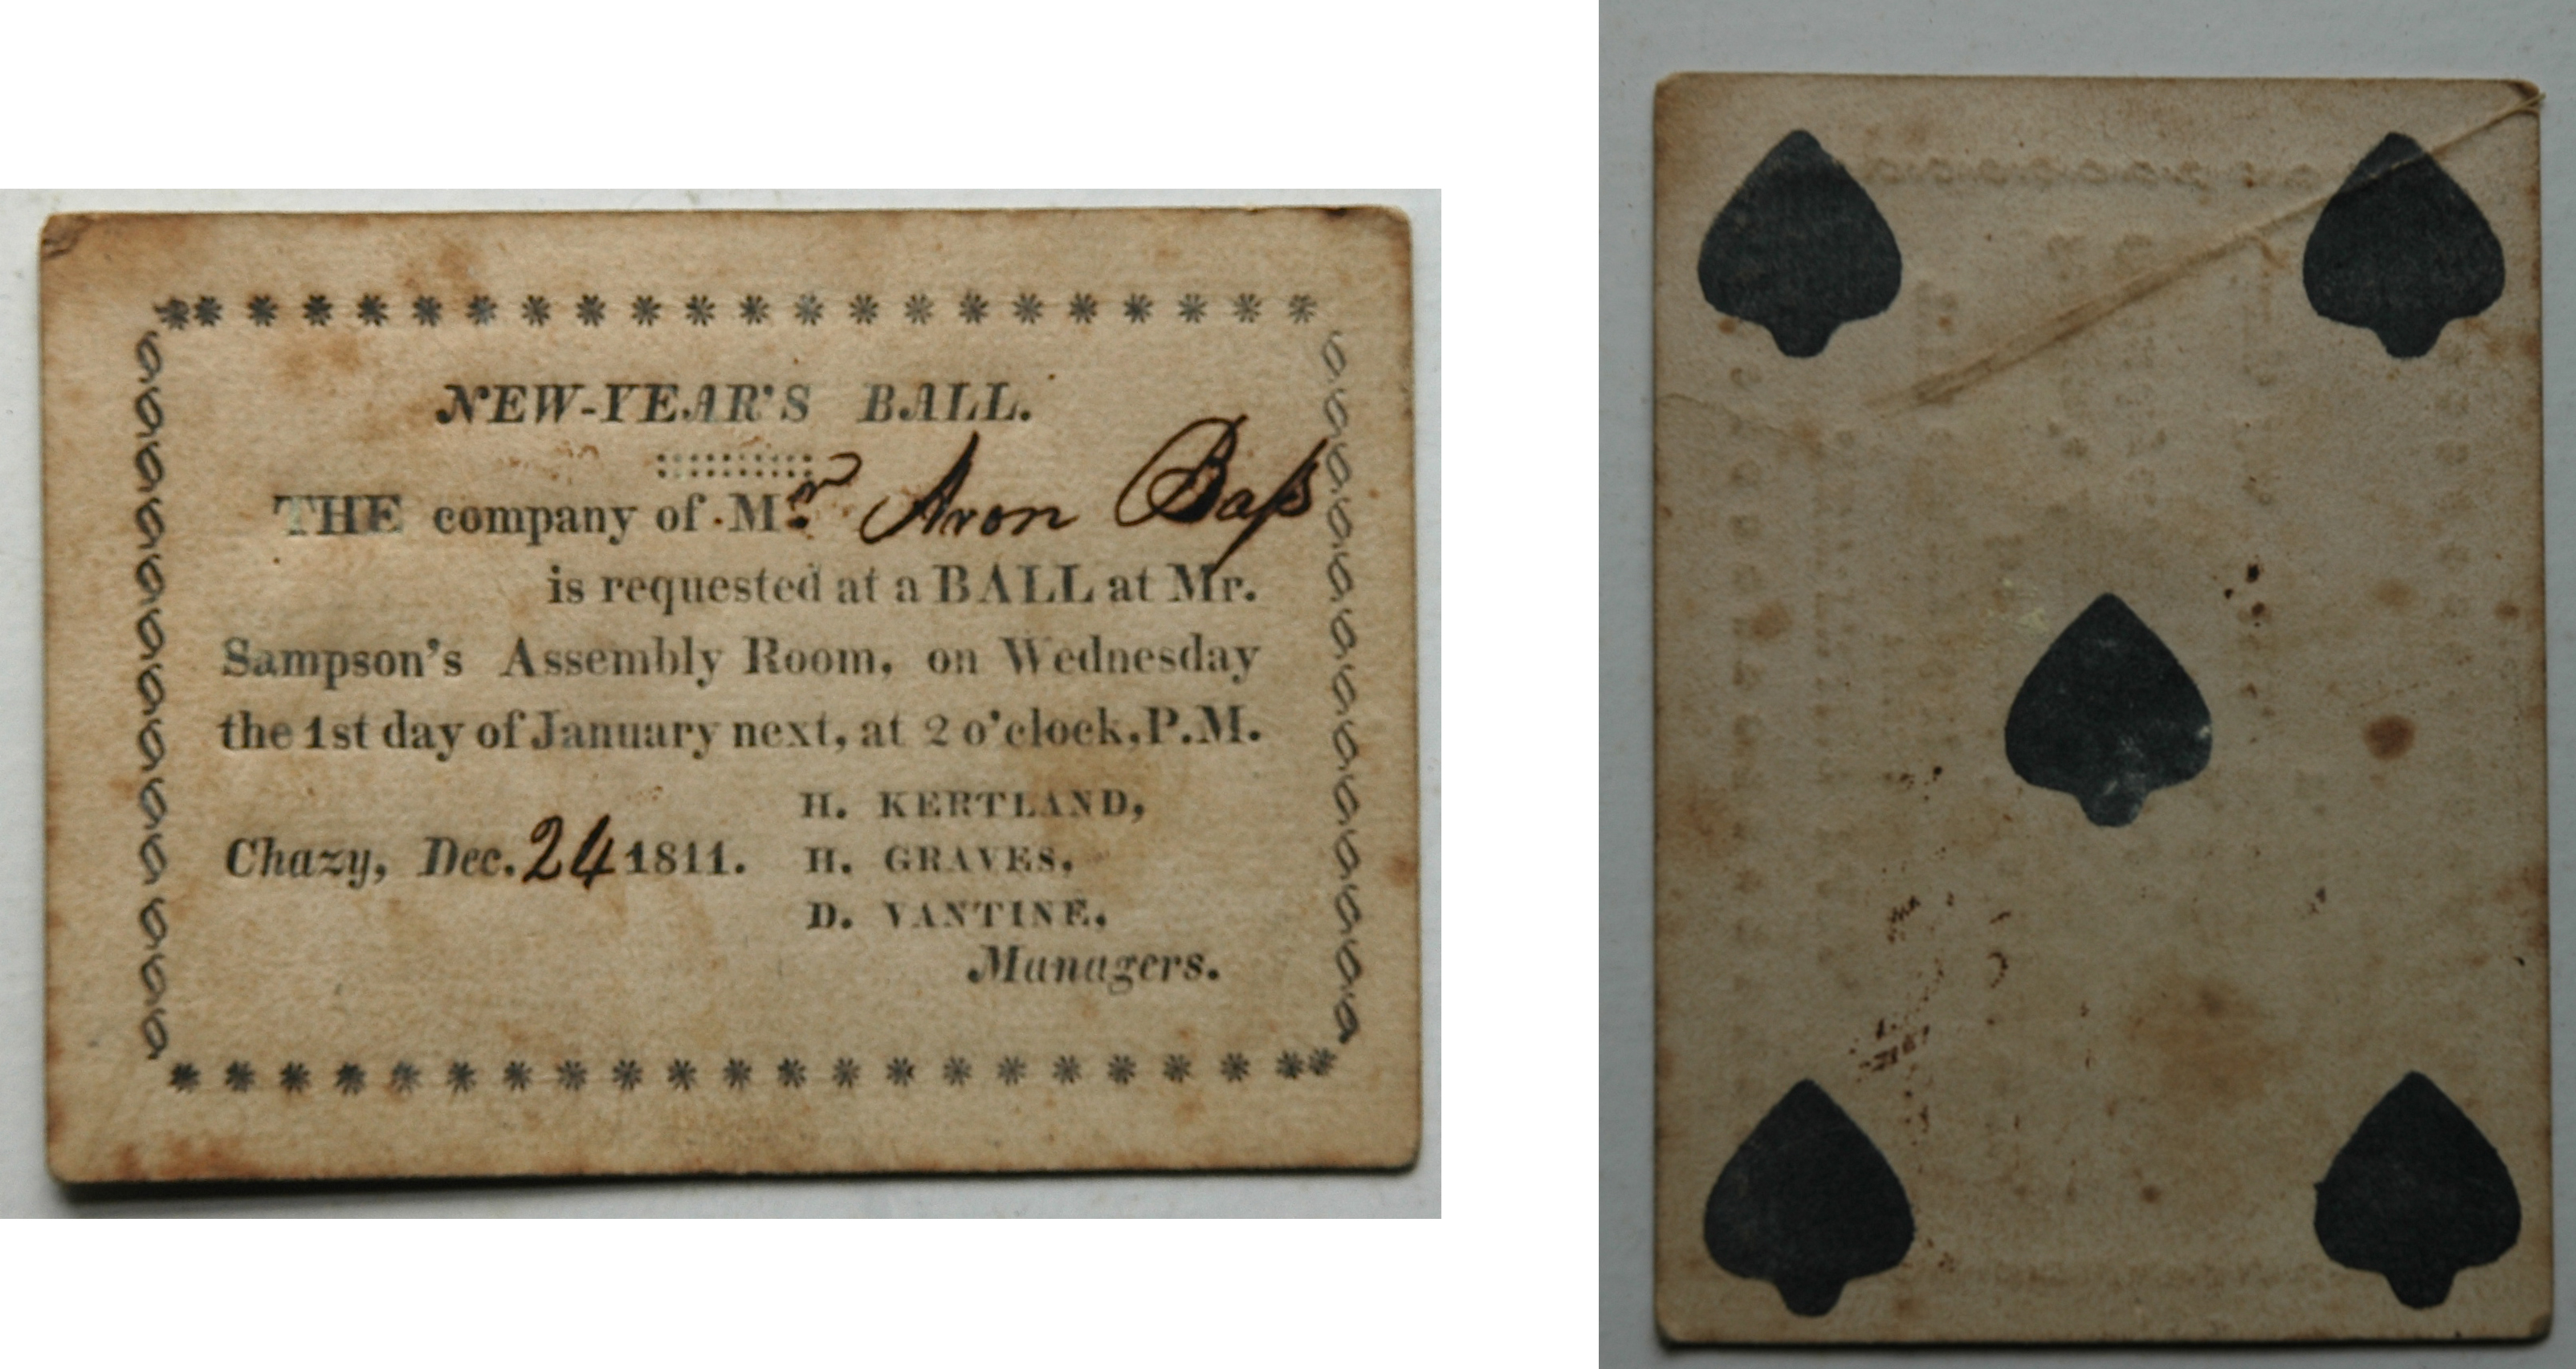 NEW-YEAR'S BALL.
THE company of Mr Aron Baſs
is requested at a BALL at Mr.
Sampson's Assembly Room, on Wednesday
the 1st day of January next, at 2 o'clock, P.M.
H. KERTLAND,
Chazy, Dec. 24 1811. H. GRAVES,
D. VANTINE,
Managers.